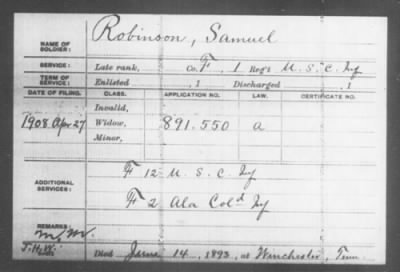 Robinson, Samuel
NAME OF SOLDIER:
SERVICE: Late rank, Co. F, 1 Reg't U. S. C. Inf
TERM OF SERVICE: Enlisted , 1 Discharged , 1
DATE OF FILING. CLASS. APPLICATION NO. LAW. CERTIFICATE NO.
Invalid,
1908 Apr 27 Widow, 891.550 a
Minor,
F 12 U. S. C. Inf
ADDITIONAL SERVICES:
F 2 Ala Cold Inf
REMARKS:
J.H.W.
Died 14, 1893, at Winchester, Tenn